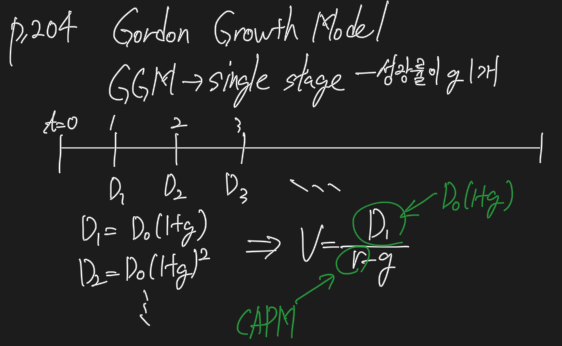 p.204 Gordon Growth Model
GGM → single stage - 성장률이 g 1개
t=0 1 2 3
D₁ D₂ D₃ ...
D₁ = D₀(1+g)
D₂ = D₀(1+g)²
⇒ V = D₁ / r-g
D₀(1+g)
CAPM